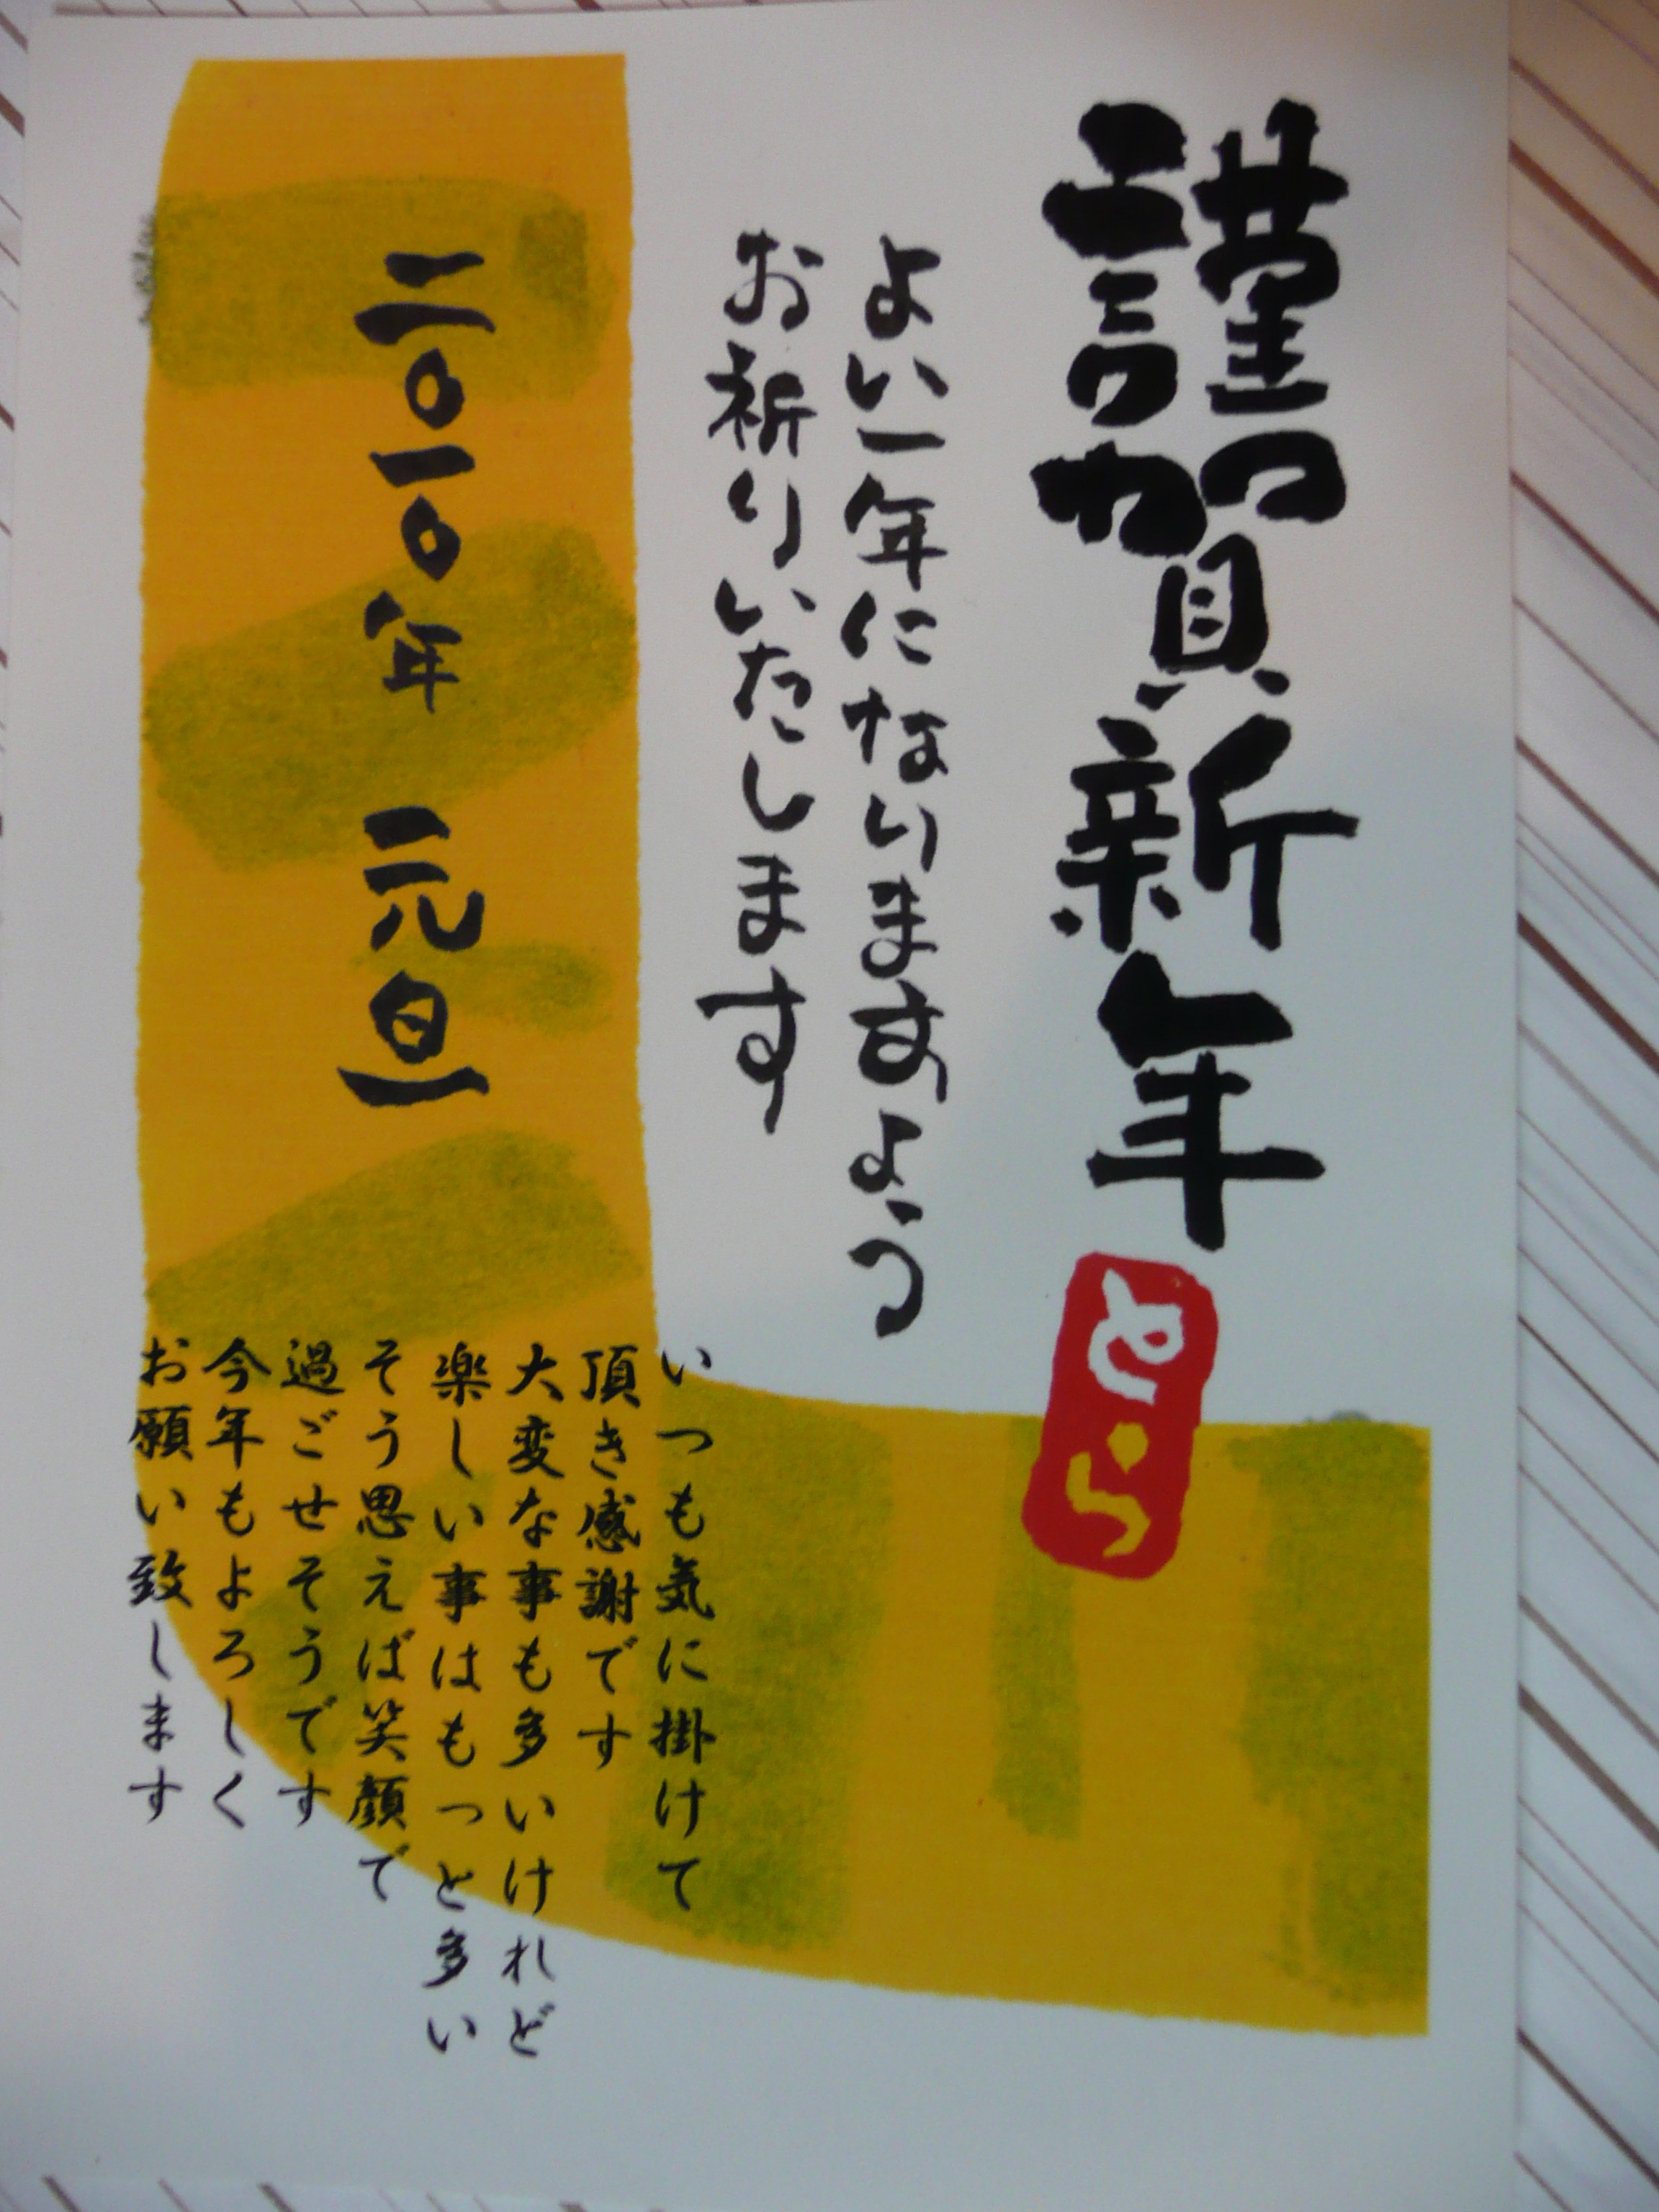 謹賀新年
とら
よい一年になりますよう
お祈りいたします
二〇一〇年 元旦
いつも気に掛けて
頂き感謝です
大変な事も多いけれど
楽しい事はもっと多い
そう思えば笑顔で
過ごせそうです
今年もよろしく
お願い致します